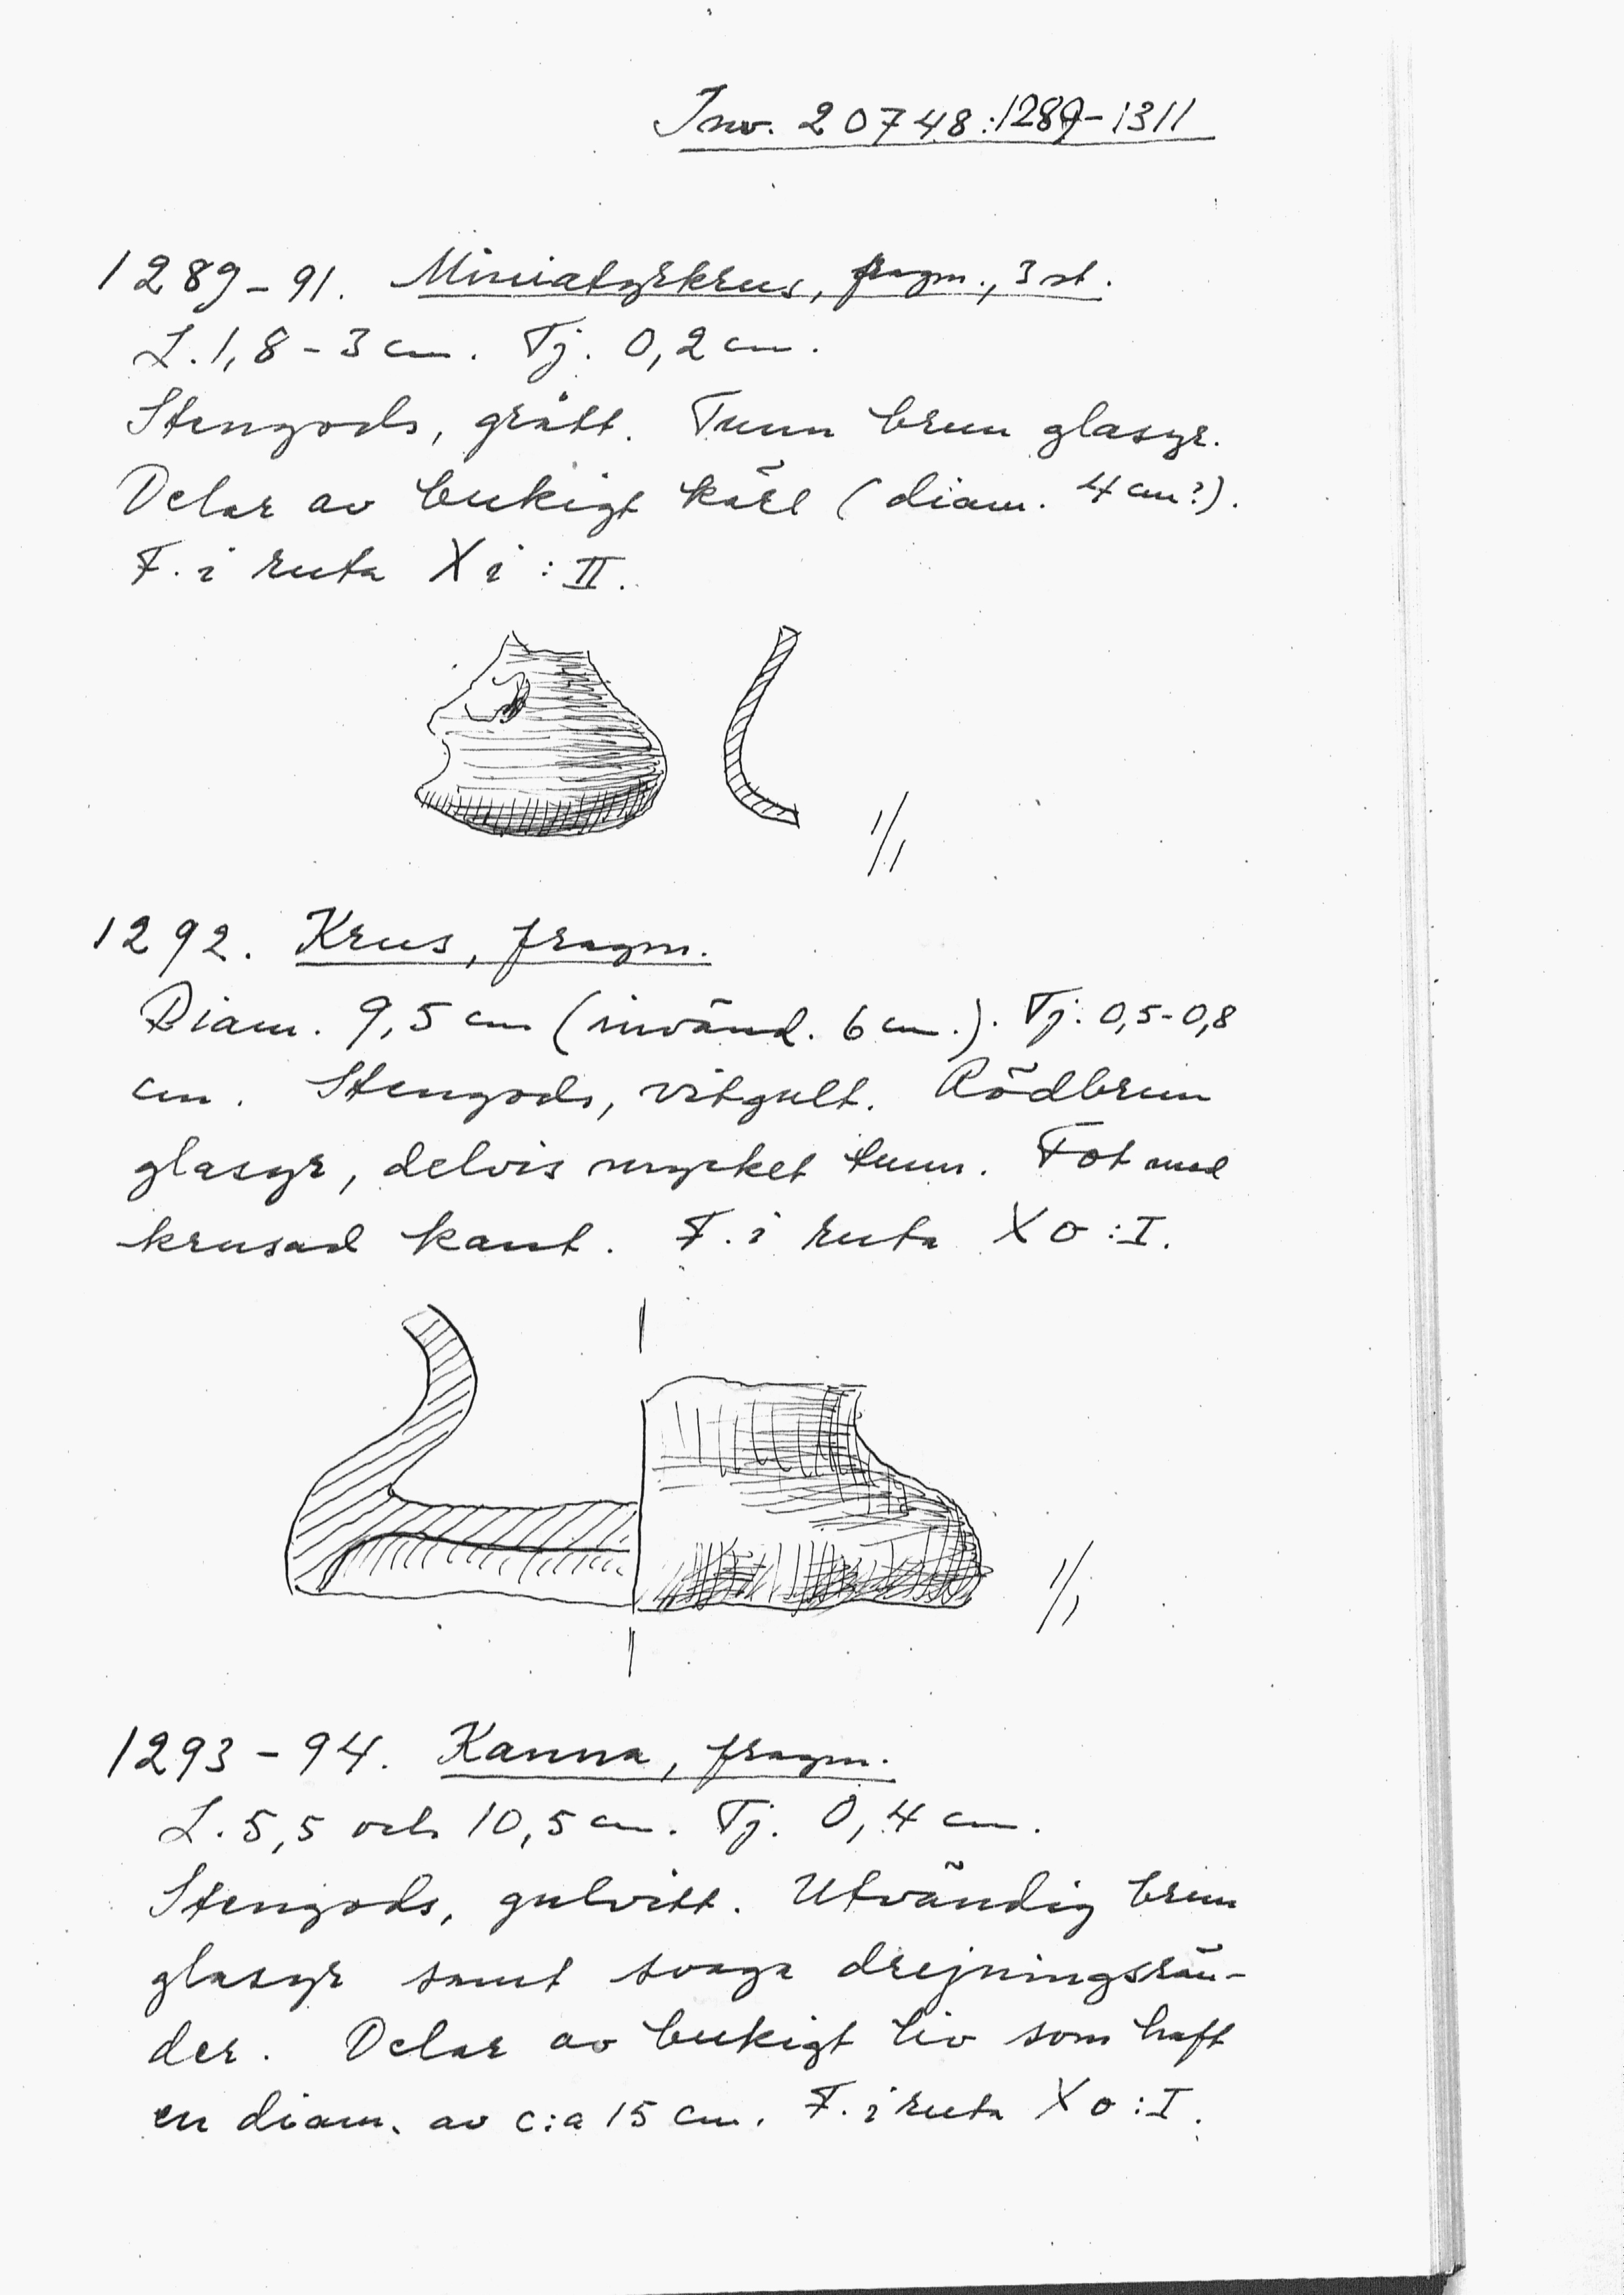 Inv. 20748:1289-1311
1289-91. Miniatyrkrus, fragm., 3 st.
L. 1,8-3 cm. Tj. 0,2 cm.
Stengods, grått. Tunn brun glasyr.
Delar av bukigt kärl (diam. 4 cm?).
F. i ruta X i : II.
1/1
1292. Krus, fragm.
Diam. 9,5 cm (invänd. 6 cm.). Tj. 0,5-0,8
cm. Stengods, vitgult. Rödbrun
glasyr, delvis mycket tunn. Fot med
krusad kant. F. i ruta X o : I.
1/1
1293-94. Kanna, fragm.
L. 5,5 och 10,5 cm. Tj. 0,4 cm.
Stengods, gulvitt. Utvändig brun
glasyr samt svaga drejningsrän-
der. Delar av bukigt liv som haft
en diam. av c:a 15 cm. F. i ruta X o : I.